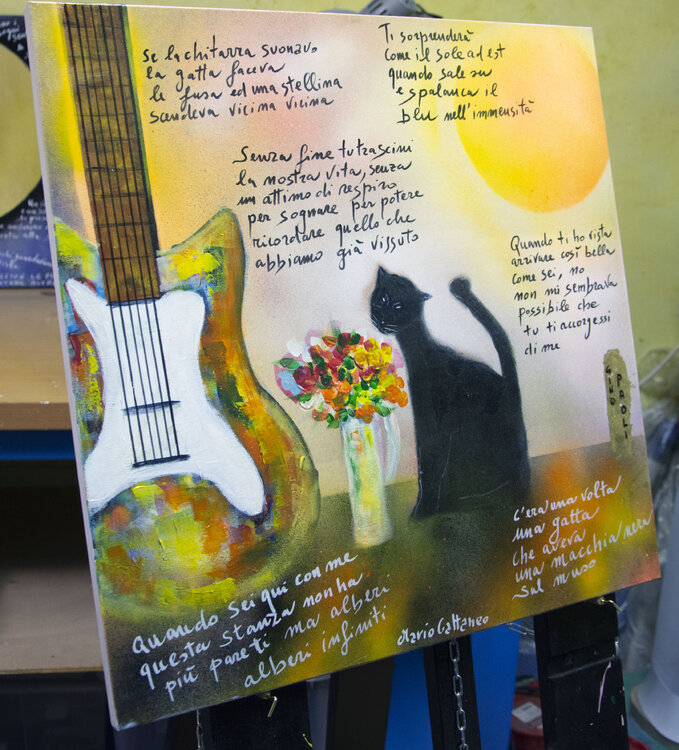 se la chitarra suonavo
la gatta faceva
le fusa ed una stellina
scendeva vicina vicina
Ti sorprenderà
come il sole ad est
quando sale su
e spalanca il
blu nell'immensità
Senza fine tu trascini
la nostra vita, senza
un attimo di respiro
per sognare per potere
ricordare quello che
abbiamo già vissuto
Quando ti ho vista
arrivare così bella
come sei, no
non mi sembrava
possibile che
tu ti accorgessi
di me
GINO
PAOLI
c'era una volta
una gatta
che aveva
una macchia nera
sul muso
quando sei qui con me
questa stanza non ha
più pareti ma alberi
alberi infiniti
Mario Cattaneo